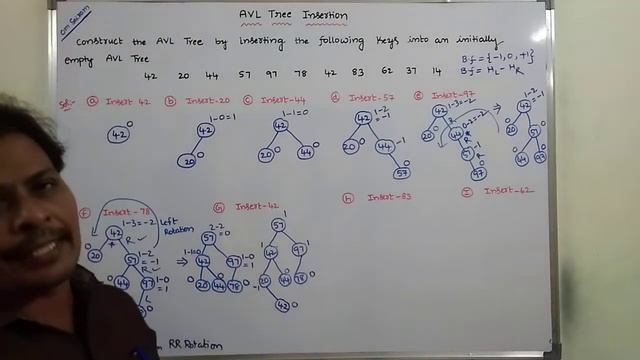 om Sairam
AVL Tree Insertion
Construct the AVL Tree by Inserting the following Keys into an initially
empty AVL Tree
Bf = {-1, 0, +1}
Bf = HL - HR
42 20 44 57 97 78 42 83 62 37 14
Sol:- a Insert 42 b Insert-20 c Insert-44 d Insert-57 e Insert-97
42 0
42 1-0=1
20 0
42 1-1=0
20 0 44 0
42 1-2 = -1
20 0 44 -1
57 0
42 1-3=-2
20 0 44 0-2=-2
R
R
57 -1
97 0
42 1-2 = -1
20 0 57 0
44 0 97 0
f Insert-78 G Insert-42 h Insert-83 I Insert-62
42 1-3=-2
R Left Rotation
20 0 57 1-2 = -1
R
97 1-0 = 1
L
0
57 2-2 = 0
42 1-1=0 97 1-0 = 1
20 0 44 0 78 0
57 1
42 1 97 1
20 -1 44 0 78 0
42 0
RR Rotation